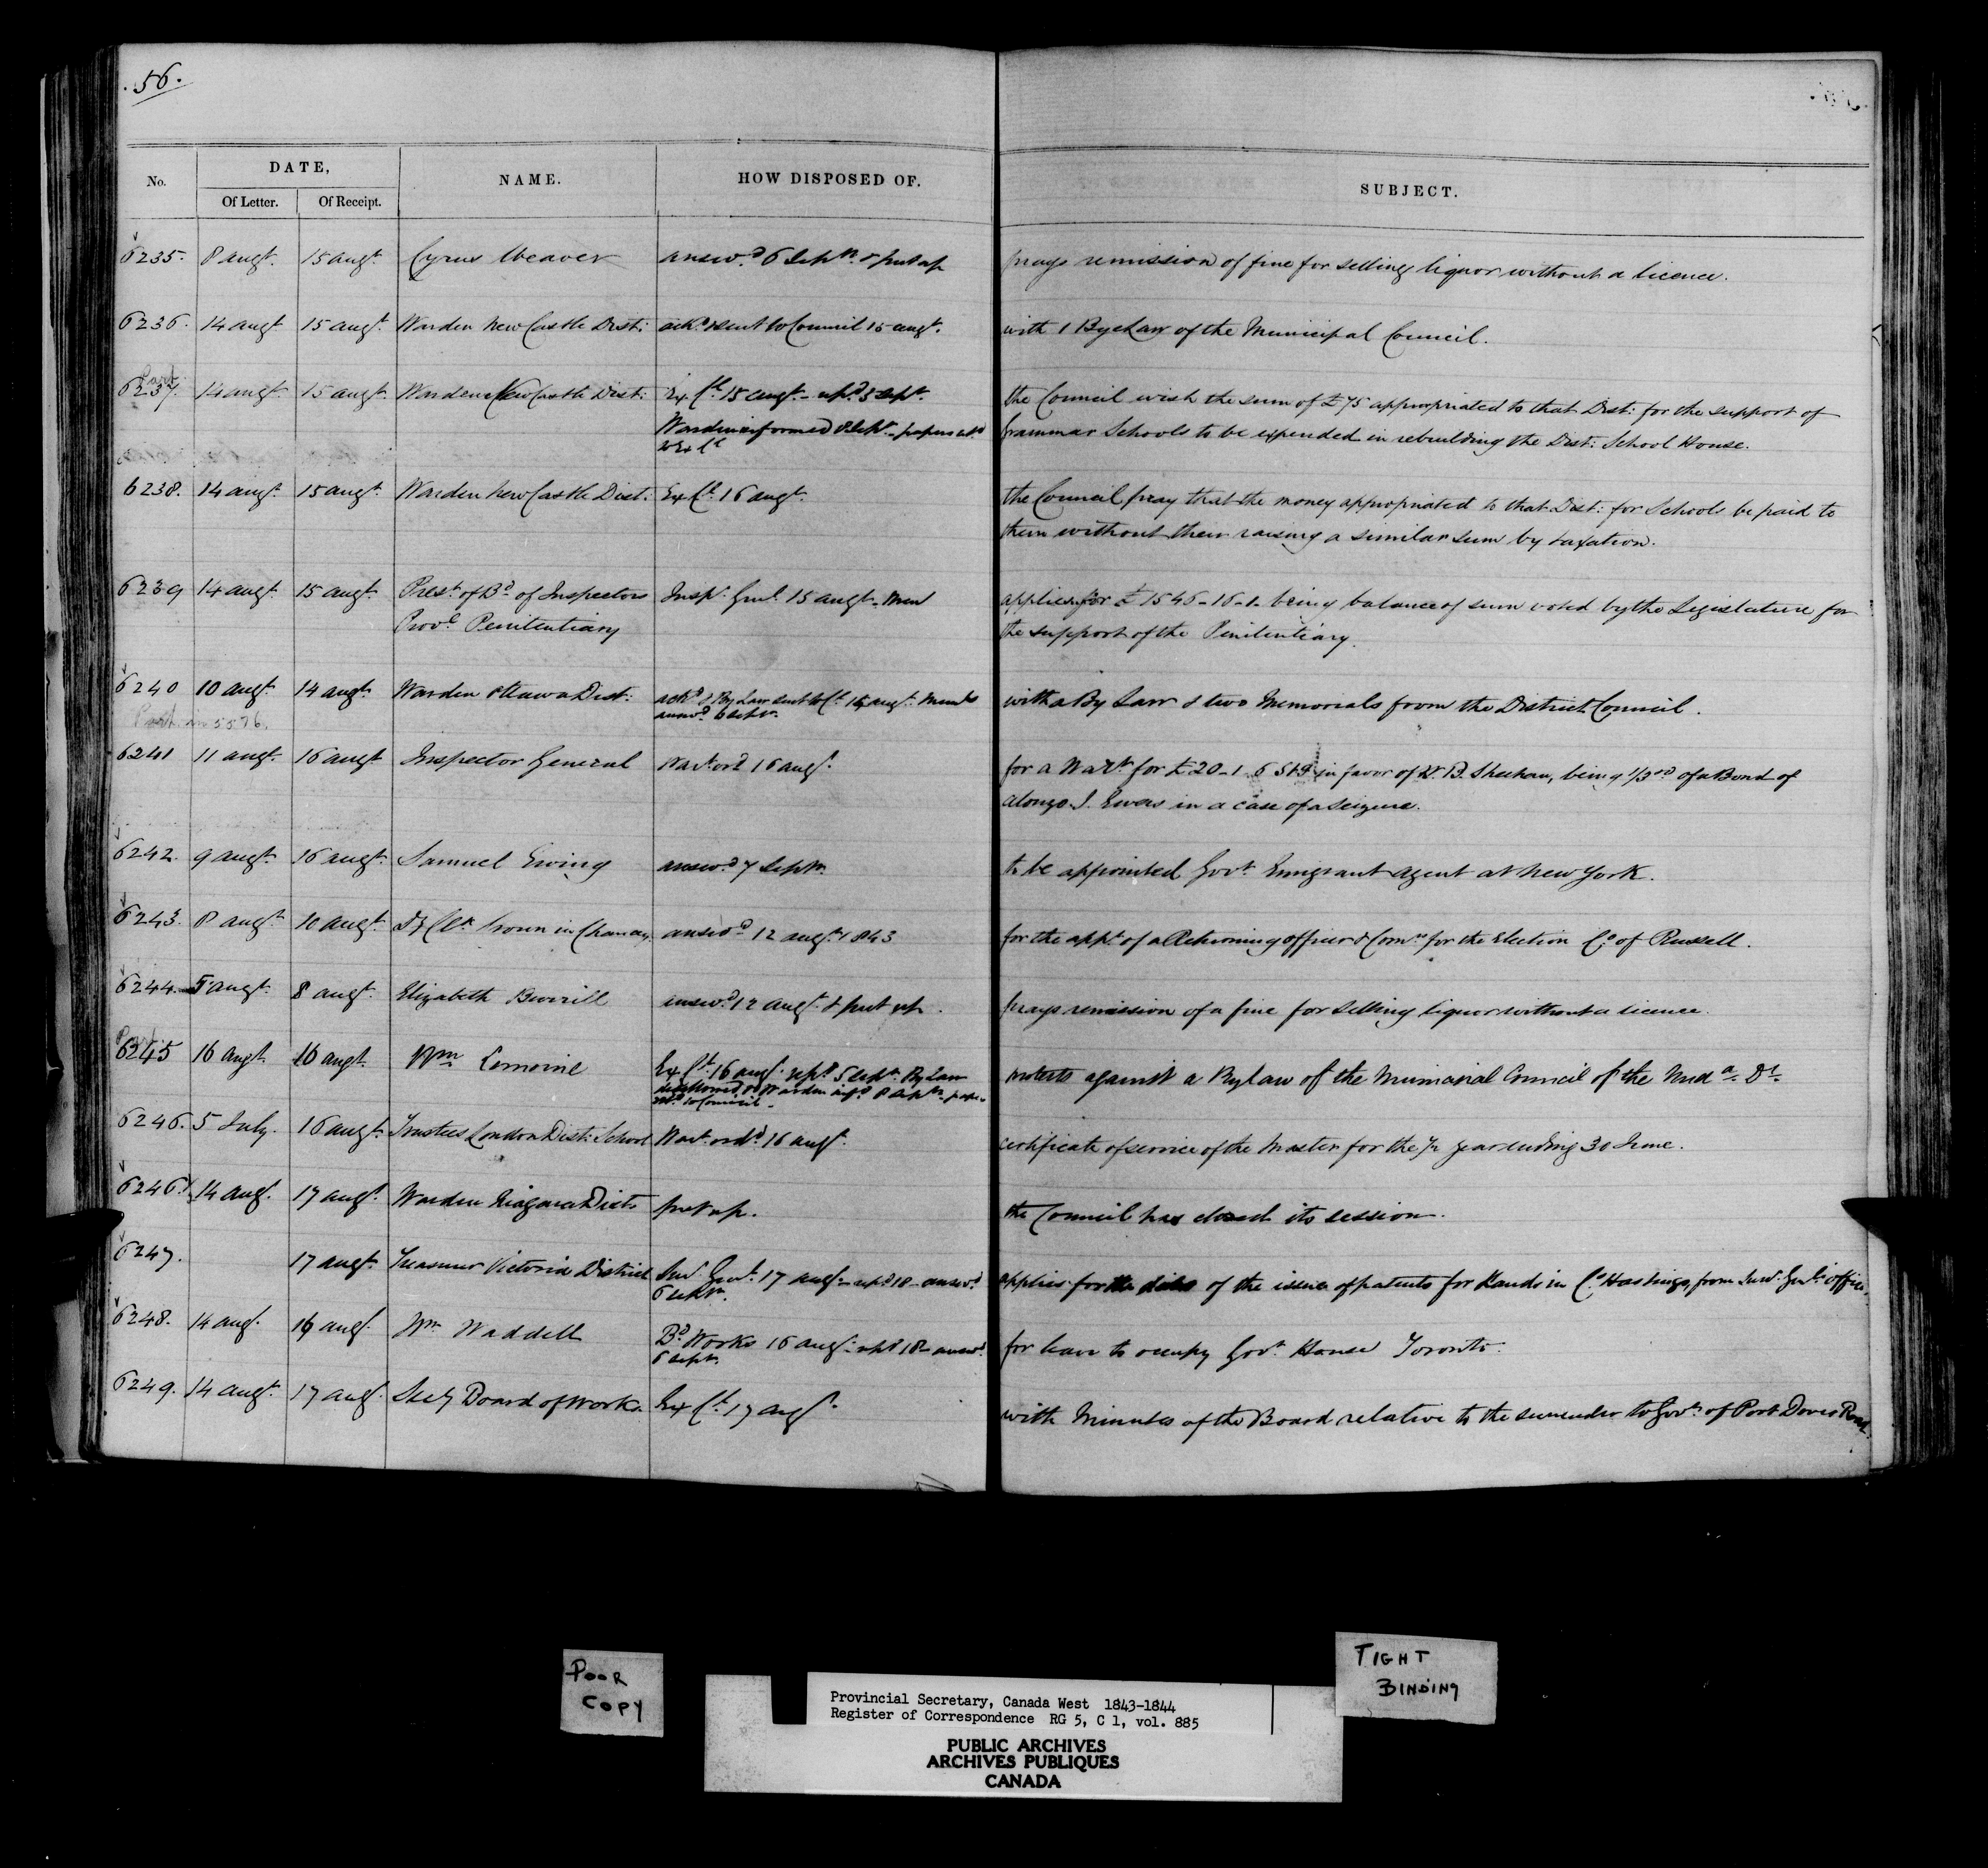 56.
DATE,
No. Of Letter. Of Receipt. NAME. HOW DISPOSED OF. SUBJECT.
6235. 8 augt. 15 augt. Cyrus Weaver answd. 6 Septr. & put up prays remission of fine for selling liquor without a licence.
6236. 14 augt 15 augt. Warden New Castle Dist: ackd. & sent to Council 15 augt. with 1 Bye Law of the Municipal Council.
Part
6237. 14 augt 15 augt. Warden New Castle Dist: Ex Cl. 15 augt. - repd. 3 Sept. the Council wish the sum of £75 appropriated to that Dist: for the support of
Warden informed 8 Sept. - papers to Ex Cl Grammar Schools to be expended in rebuilding the Dist: School House.
6238. 14 augt. 15 augt. Warden New Castle Dist. Ex Cl. 16 augt. the Council pray that the money appropriated to that Dist: for Schools be paid to
them without their raising a similar sum by taxation.
6239 14 augt. 15 augt. Prest. of Bd. of Inspectors Inspr. Genl. 15 augt. - Mem applies for £1546-16-1- being balance of sum voted by the Legislature for
Provl. Penitentiary the support of the Penitentiary.
6240 10 augt. 14 augt. Warden Ottawa Dist: ackd. & By Law sent to Cl. 15 augt. with a By Law & two Memorials from the District Council.
Part in 5576. answd. 6 Septr.
6241 11 augt. 16 augt Inspector General Wart. ord. 16 augt. for a Warrt. for £20-1 6 Stg in favor of W. B. Sheehan, being 1/3rd of a Bond of
Alonzo J. Ewers in a case of a Seizure.
6242. 9 augt. 16 augt. Samuel Ewing answd. 7 Septr. to be appointed Govt. Emigrant agent at New York.
6243. 8 augt. 10 augt. Dy Clk Crown in Chancy. answd. 12 augt. 1843 for the appt. of a Returning officer & Comn. for the Election Co. of Russell.
6244. 5 augt. 8 augt. Elizabeth Burrill answd. 12 augt. & put up. prays remission of a fine for selling liquor without a licence.
Part.
6245 16 augt. 16 augt. Wm Lemoine Ex Cl. 16 augt. repd. 5 Septr. By Law protests against a By law of the Municipal Council of the Midd. Dt.
disallowed & Warden infd. 8 Septr. - papers
to Council -
6246. 5 July. 16 augt. Trustees London Dist: School Wart. ordd. 16 augt. certificate of service of the Master for the 1/2 year ending 30 June.
6246½ 14 augt. 17 augt. Warden Niagara Dist. put up. the Council has closed its session.
6247. 17 augt. Treasurer Victoria District Surr. Genl. 17 augt. - repd. 18 - answd. applies for the dates of the issue of patents for Lands in Co. Hastings, from Surr. Genl's. office.
6 Septr.
6248. 14 augt. 16 augt. Wm Waddell Bd. Works 16 augt. - repd. 18 - answd. for leave to occupy Govt. House Toronto.
6 Septr.
6249. 14 augt. 17 augt. Secy Board of Works. Ex Cl. 17 augt. with Minutes of the Board relative to the surrender to Govt. of Port Dover Road.
POOR
COPY
TIGHT
BINDING
Provincial Secretary, Canada West 1843-1844
Register of Correspondence RG 5, C 1, vol. 885
PUBLIC ARCHIVES
ARCHIVES PUBLIQUES
CANADA